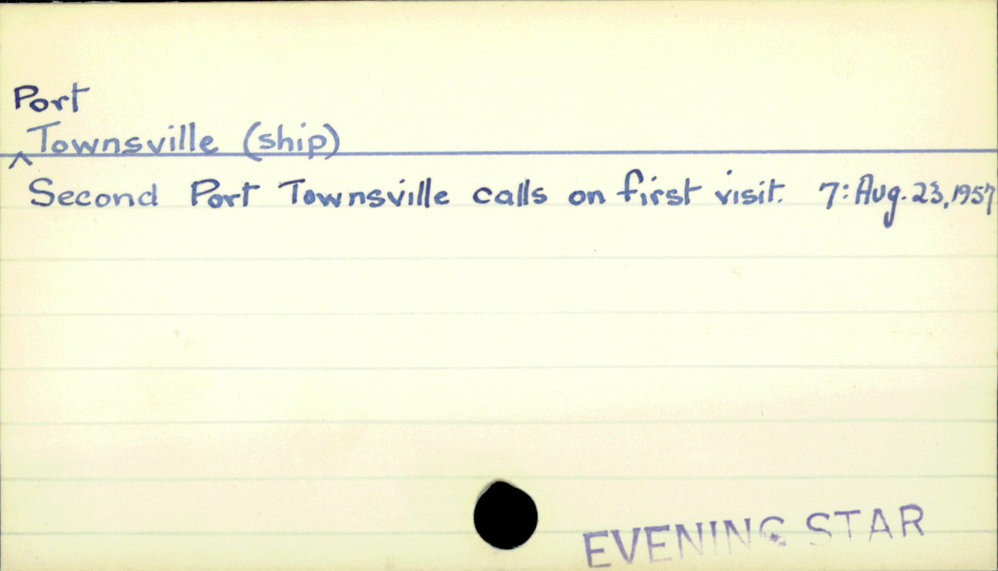 Port
^Townsville (ship)
Second Port Townsville calls on first visit. 7: Aug. 23, 1957
EVENING STAR